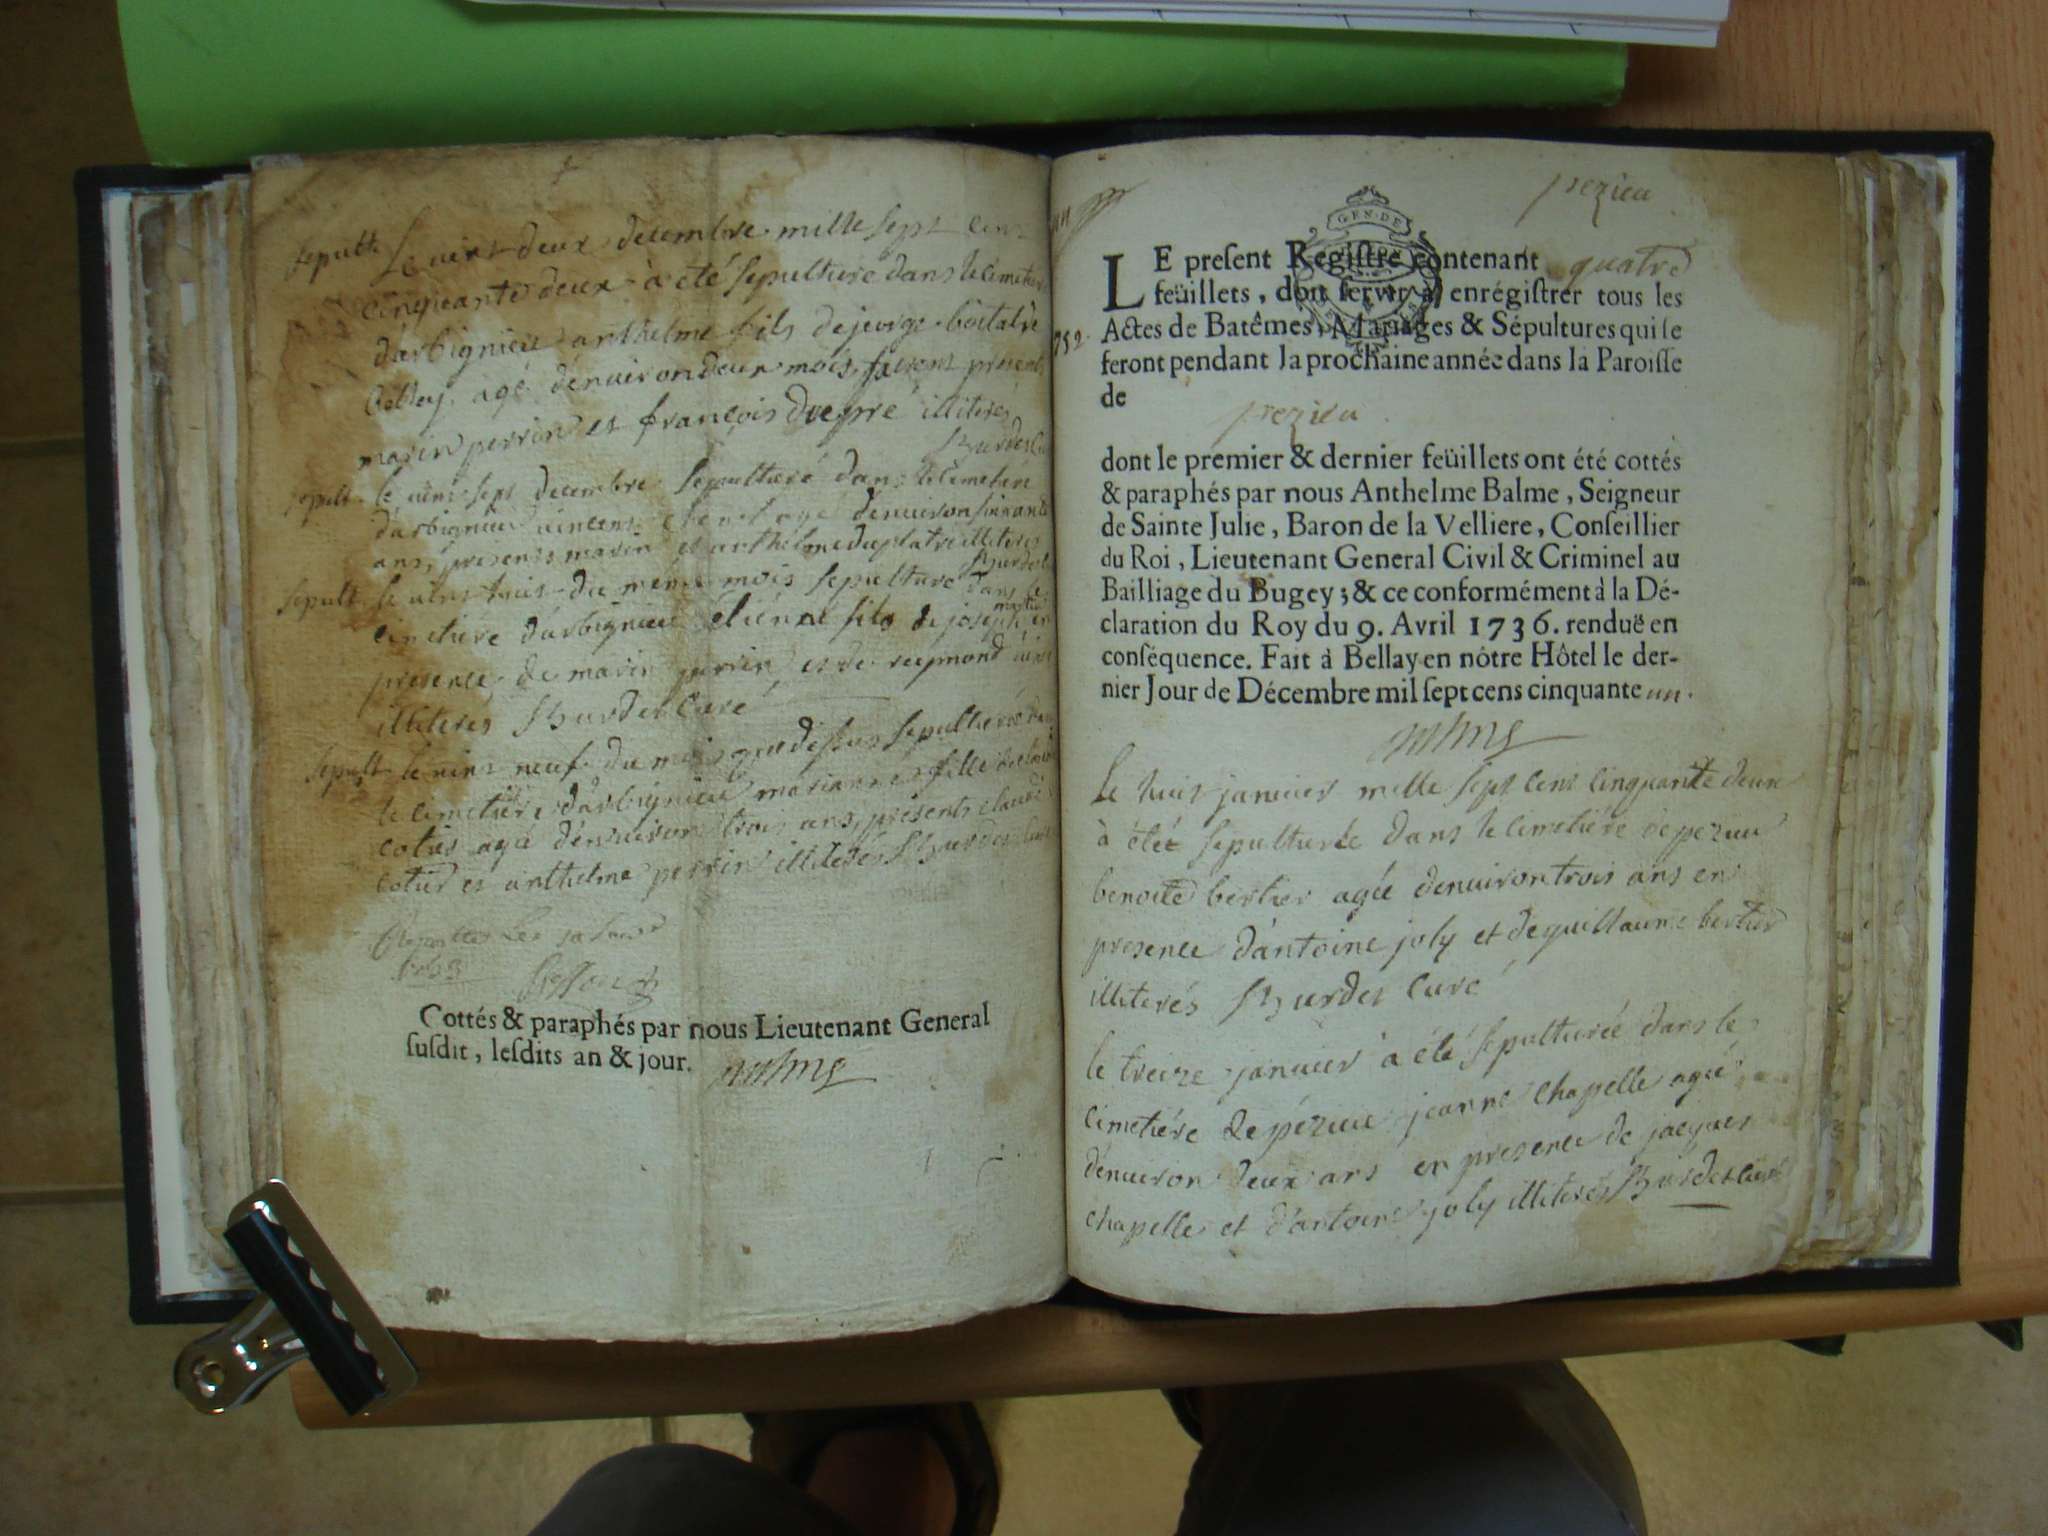 sepult. le vint deux decembre mille sept cent
cinquante deux à été sepulture dans le cimetiere
d'arbignieu anthelme fils de jeorge
agé d'environ deux mois, furent presents
marin perrin et françois dupré illiterés
Burdet
sepult. le vint sept decembre sepulturé dans le cimetiere
d'arbignieu agé d'environ
ans, presents marin et anthelme duplatre illiterés
Burdet
sepult. le vint du même mois sepulturé dans le
cimetiere d'arbignieu étienne fils de joseph en
presence de marin perrin, et de
illiterés Burdet curé
sepult. le vint neuf du mois que dessus sepulturée dans
le cimetiere d'arbignieu marianne fille de
cotier agée d'environ trois ans, presents claude
cotier et anthelme perrin illiterés Burdet
Cottés & paraphés par nous Lieutenant General
susdit, lesdits an & jour.
prezieu
GEN·DE
LE present Registre contenant quatre
feüillets, doit servir à enrégistrer tous les
Actes de Batêmes, Mariages & Sépultures qui se
feront pendant la prochaine année dans la Paroisse
de
prezieu
dont le premier & dernier feüillets ont été cottés
& paraphés par nous Anthelme Balme, Seigneur
de Sainte Julie, Baron de la Velliere, Conseillier
du Roi, Lieutenant General Civil & Criminel au
Bailliage du Bugey; & ce conformément à la Dé-
claration du Roy du 9. Avril 1736. renduë en
conséquence. Fait à Bellay en nôtre Hôtel le der-
nier Jour de Décembre mil sept cens cinquante un.
le huit janvier mille sept cent cinquante deux
à étée sepulturée dans le cimetiére de pezieu
benoite bertier agée d'environ trois ans en
presence d'antoine joly et de guillaume bertier
illiterés Burdet curé
le treize janvier à été sepulturée dans le
cimetiére de pézieu jeanne chapelle agée
d'environ deux ans en presence de jacques
chapelle et d'antoine joly illiterés Burdet curé